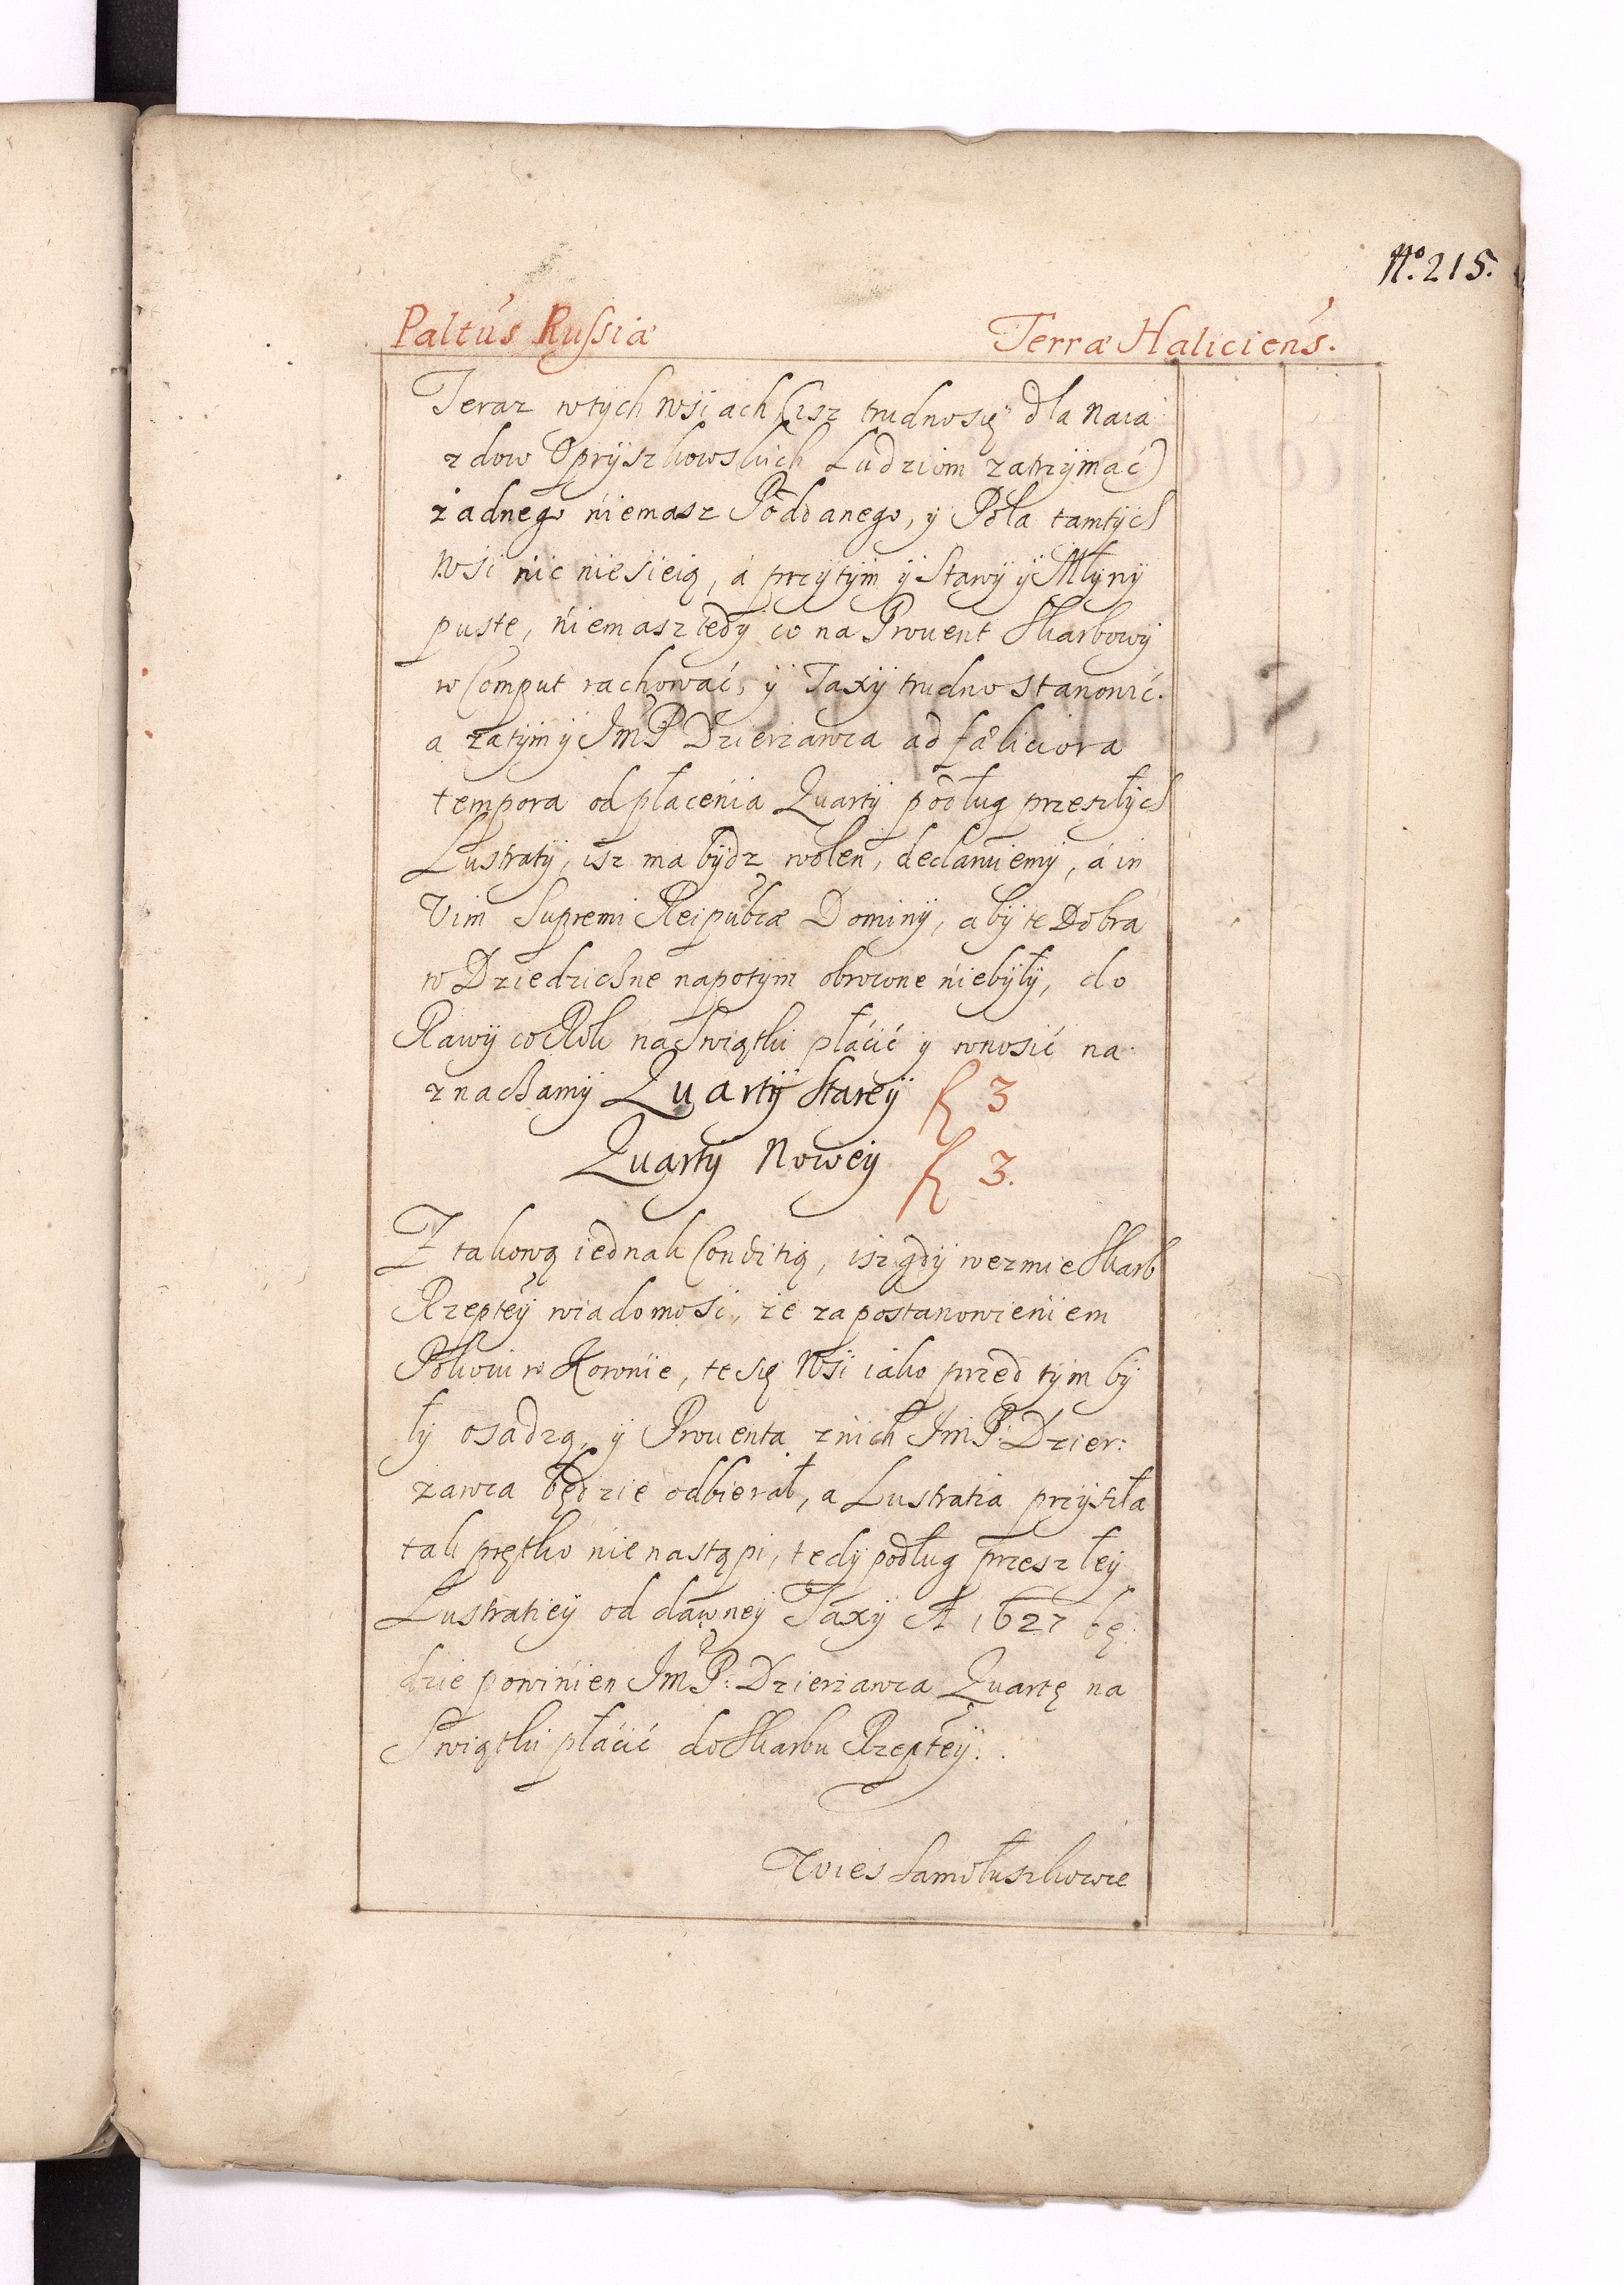 No. 215.
Paltus Russiæ Terræ Haliciens.
Teraz w tych wsiach (isz trudno się dla naia
zdow Opryszkowskich Ludziom zatrzymać)
żadnego niemasz Poddanego, y Pola tamtych
wsi nic niesieią, á przytym y Stawy y Młyny
puste, niemasz tedy co na Prouent Skarbowy
w Comput rachować, y Taxy trudno stanowić.
a zatym y ImP Dzierzawca ad fæliciora
tempora od płacenia Quarty podług przeszłych
Lustraty, isz ma bydz wolen, declaruiemy, á in
Vim Supremi Reipubcæ Dominy, aby te Dobra
w Dziedziczne napotym obrocone niebyły, do
Rawy co Rok na Swiątki płácić y wnosić na
znaczamy Quarty Starey fl 3
Quarty Nowey fl 3.
Z takową iednak Conditią, isz gdy wezmie Skarb
Rzeptey wiadomosć, że za postanowieniem
Pokoiu w Koronie, te się wsi iako przed tym by
ły osadzą, y Prouenta z nich ImP: Dzier:
zawca będzie odbierał, a Lustratia przyszła
tak prętko nie nastąpi, tedy podług przeszłey
Lustratiey od dawney Taxy A 1627 bę:
dzie powinien ImP: Dzierzawca Quartę na
Swiątki płácić do Skarbu Rzeptey.
Wies Samołuszkowce